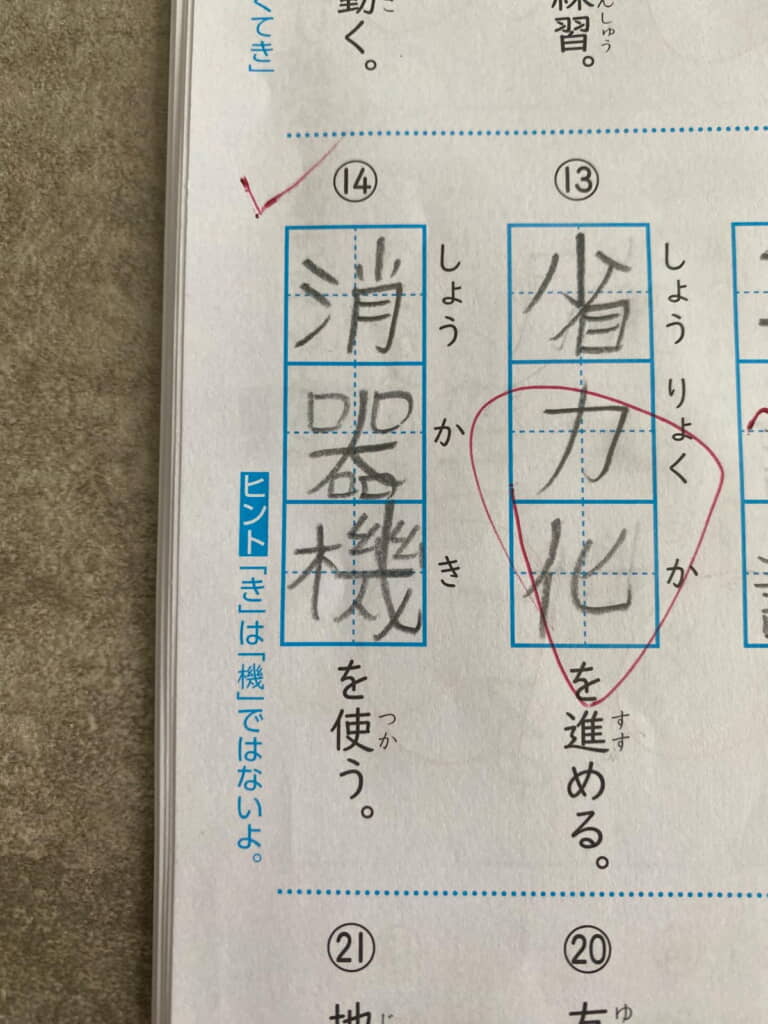 練習。
んしゅう
動く。
こ
くてき」
⑬
省力化を進める。
しょうりょくか
すす
⑭
消器機を使う。
しょうかき
つか
ヒント「き」は「機」ではないよ。
⑳
ゆ
㉑
地
じ